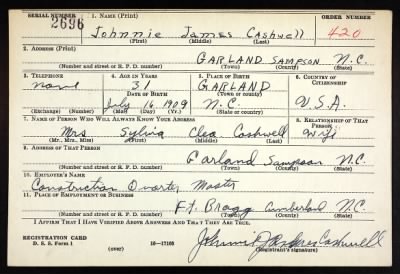 SERIAL NUMBER 1. NAME (Print) ORDER NUMBER
2696 Johnnie James Cashwell 420
(First) (Middle) (Last)
2. ADDRESS (Print)
GARLAND SAMPSON N.C.
(Number and street or R. F. D. number) (Town) (County) (State)
3. TELEPHONE 4. AGE IN YEARS 5. PLACE OF BIRTH 6. COUNTRY OF CITIZENSHIP
None 31 GARLAND
DATE OF BIRTH (Town or county)
July 16 1909 N.C. U.S.A.
(Exchange) (Number) (Mo.) (Day) (Yr.) (State or country)
7. NAME OF PERSON WHO WILL ALWAYS KNOW YOUR ADDRESS 8. RELATIONSHIP OF THAT PERSON
Mrs Sylvia Cleo Cashwell Wife
(Mr., Mrs., Miss) (First) (Middle) (Last)
9. ADDRESS OF THAT PERSON
Garland Sampson N.C.
(Number and street or R. F. D. number) (Town) (County) (State)
10. EMPLOYER'S NAME
Construction Quarter Master
11. PLACE OF EMPLOYMENT OR BUSINESS
Ft. Bragg Cumberland N.C.
(Number and street or R. F. D. number) (Town) (County) (State)
I AFFIRM THAT I HAVE VERIFIED ABOVE ANSWERS AND THAT THEY ARE TRUE.
REGISTRATION CARD
D. S. S. Form 1 (over) 16—17105 Johnnie James Cashwell
(Registrant's signature)